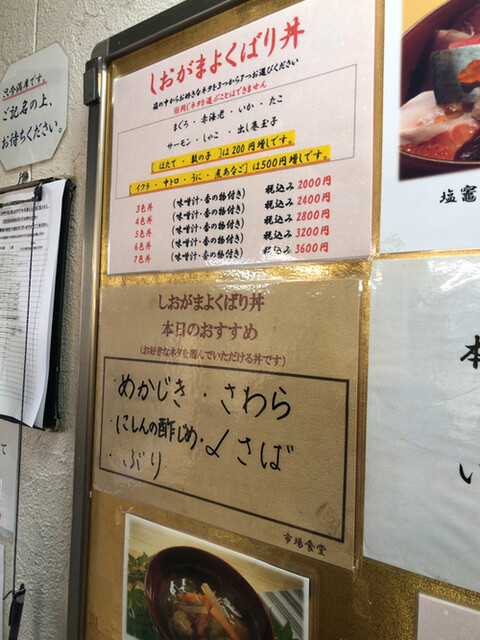 只今満席です。
ご記名の上、
お待ちください。
しおがまよくばり丼
箱の中からお好きなネタを3つから7つお選びください
※同じネタを選ぶことはできません
まぐろ・赤海老・いか・たこ
サーモン・しゃこ・出し巻玉子
[ほたて・数の子]は200円増しです。
[イクラ・中トロ・うに・煮あなご]は500円増しです。
3色丼 (味噌汁・香の物付き) 税込み2000円
4色丼 (味噌汁・香の物付き) 税込み2400円
5色丼 (味噌汁・香の物付き) 税込み2800円
6色丼 (味噌汁・香の物付き) 税込み3200円
7色丼 (味噌汁・香の物付き) 税込み3600円
しおがまよくばり丼
本日のおすすめ
(お好きなネタを選んでいただける丼です)
・めかじき・さわら
・にしんの酢じめ・〆さば
・ぶり
市場食堂
塩竈
本
い